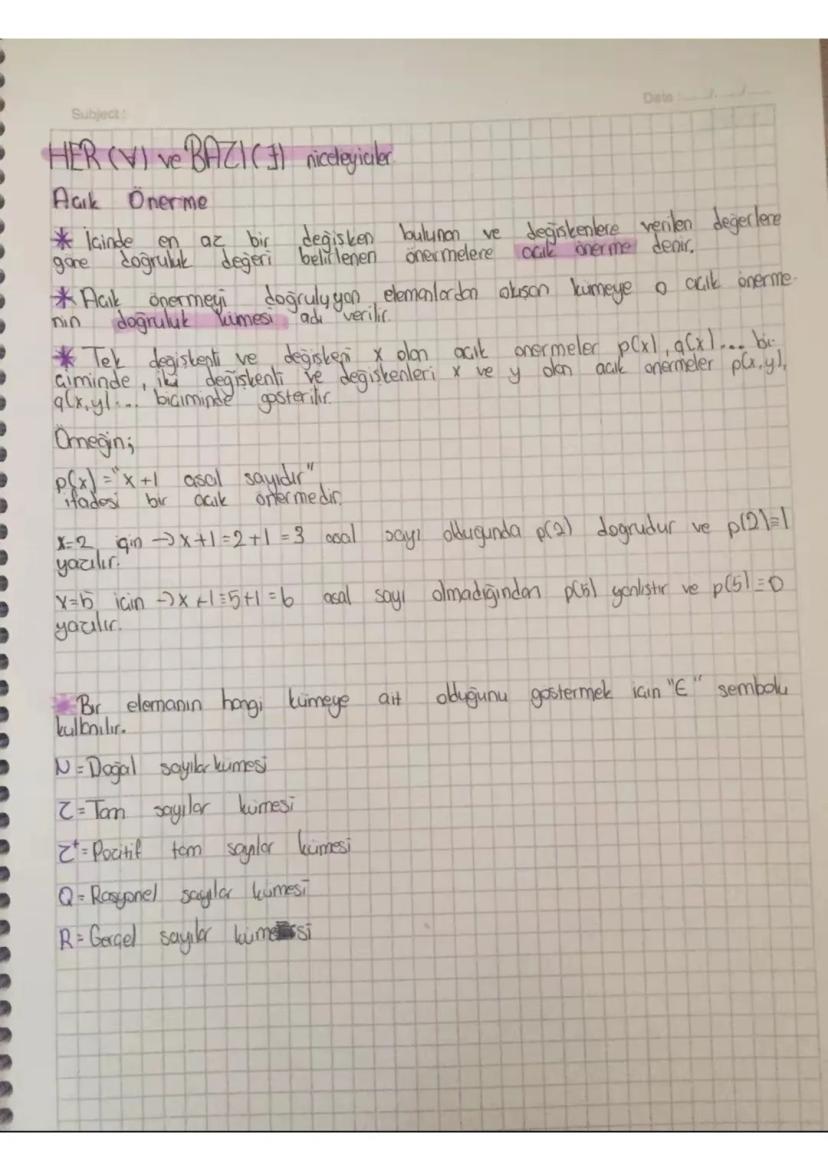 Subject:
Date :..../..../....
HER (∀) ve BAZI (∃) niceleyiciler
Acık Önerme
* İcinde en az bir değisken bulunan ve değiskenlere verilen değerlere
göre doğruluk değeri belirlenen önermelere acık önerme denir.
* Acık önermeyi doğrulayan elemanlardan olusan kumeye o acık önerme-
nin doğruluk kümesi adı verilir.
* Tek değiskenli ve değiskeni x olan acık onermeler p(x), q(x)... bi-
ciminde, iki değiskenli ve değiskenleri x ve y olan acık onermeler p(x,y),
q(x,y)... biciminde gosterilir.
Örneğin;
p(x) = "x+1 asal sayıdır"
ifadesi bir acık önermedir.
x=2 için → x+1=2+1=3 asal sayı olduğunda p(2) dogrudur ve p(2)≡1
yazılır.
x=5 icin → x+1=5+1=6 asal sayı olmadığından p(5) yanlıstır ve p(5)≡0
yazılır.
* Bir elemanın hangi kümeye ait olduğunu gostermek icin "∈" sembolu
kullanılır.
N = Doğal sayılar kumesi
Z = Tam sayılar kümesi
Z⁺ = Pozitif tam sayılar kümesi
Q = Rasyonel sayılar kümesi
R = Gerçel sayılar kümesi